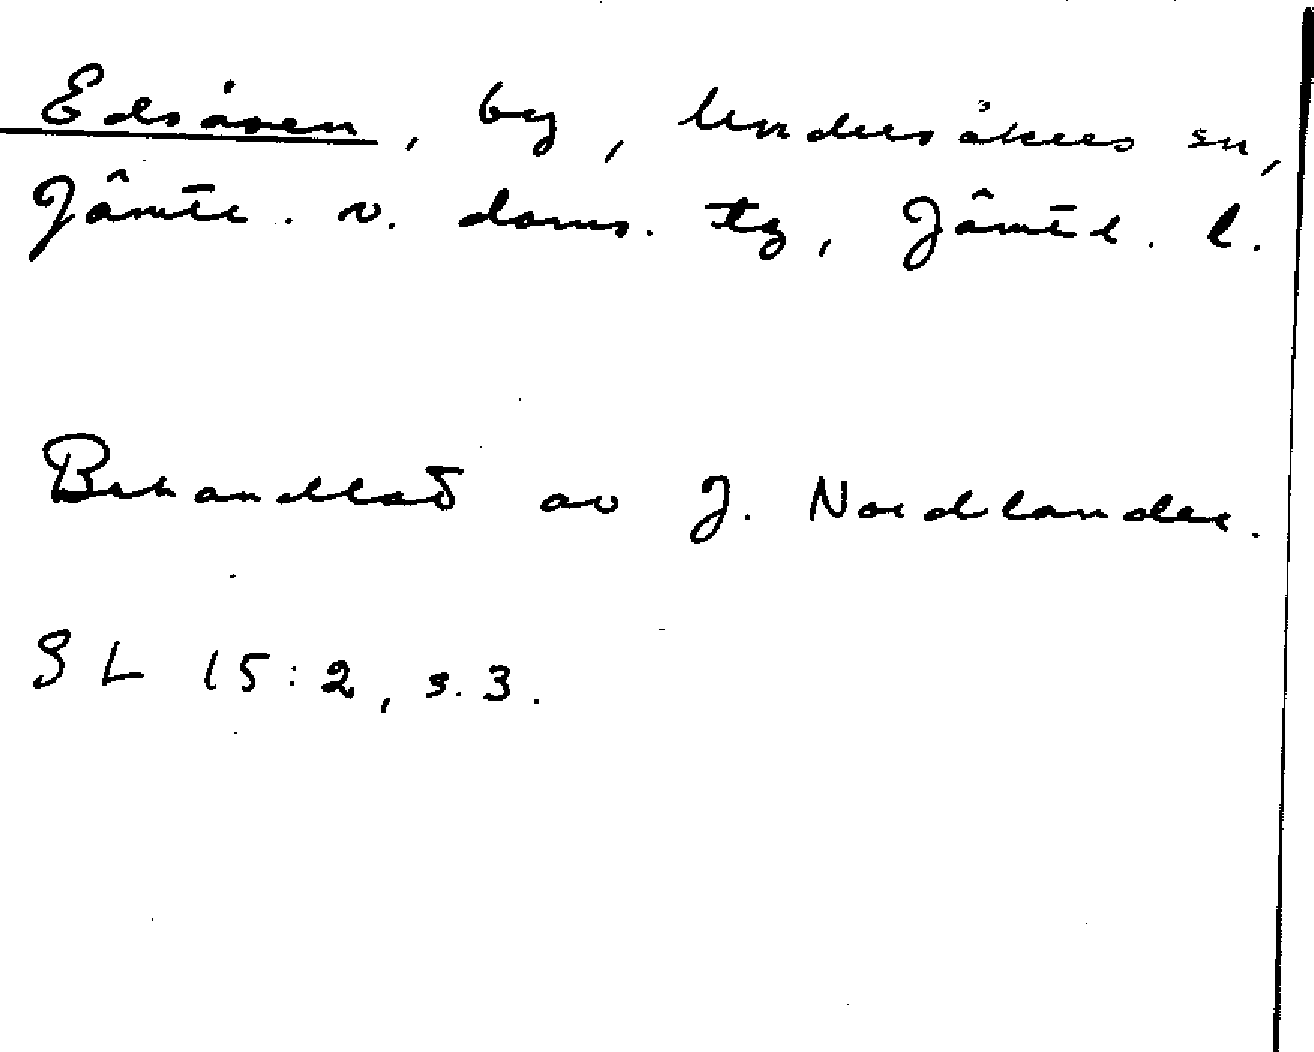 Edsåsen, by, Undersåkers sn,
Jämtl. v. doms. tg, Jämtl. l.
Behandlat av J. Nordlander.
SL 15:2, s. 3.